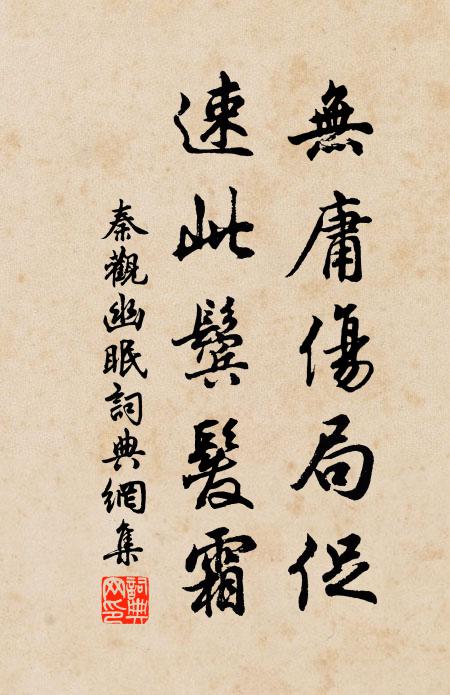 無庸傷局促
速此鬢髮霜
秦觀幽眠詞典網集
詞典網印